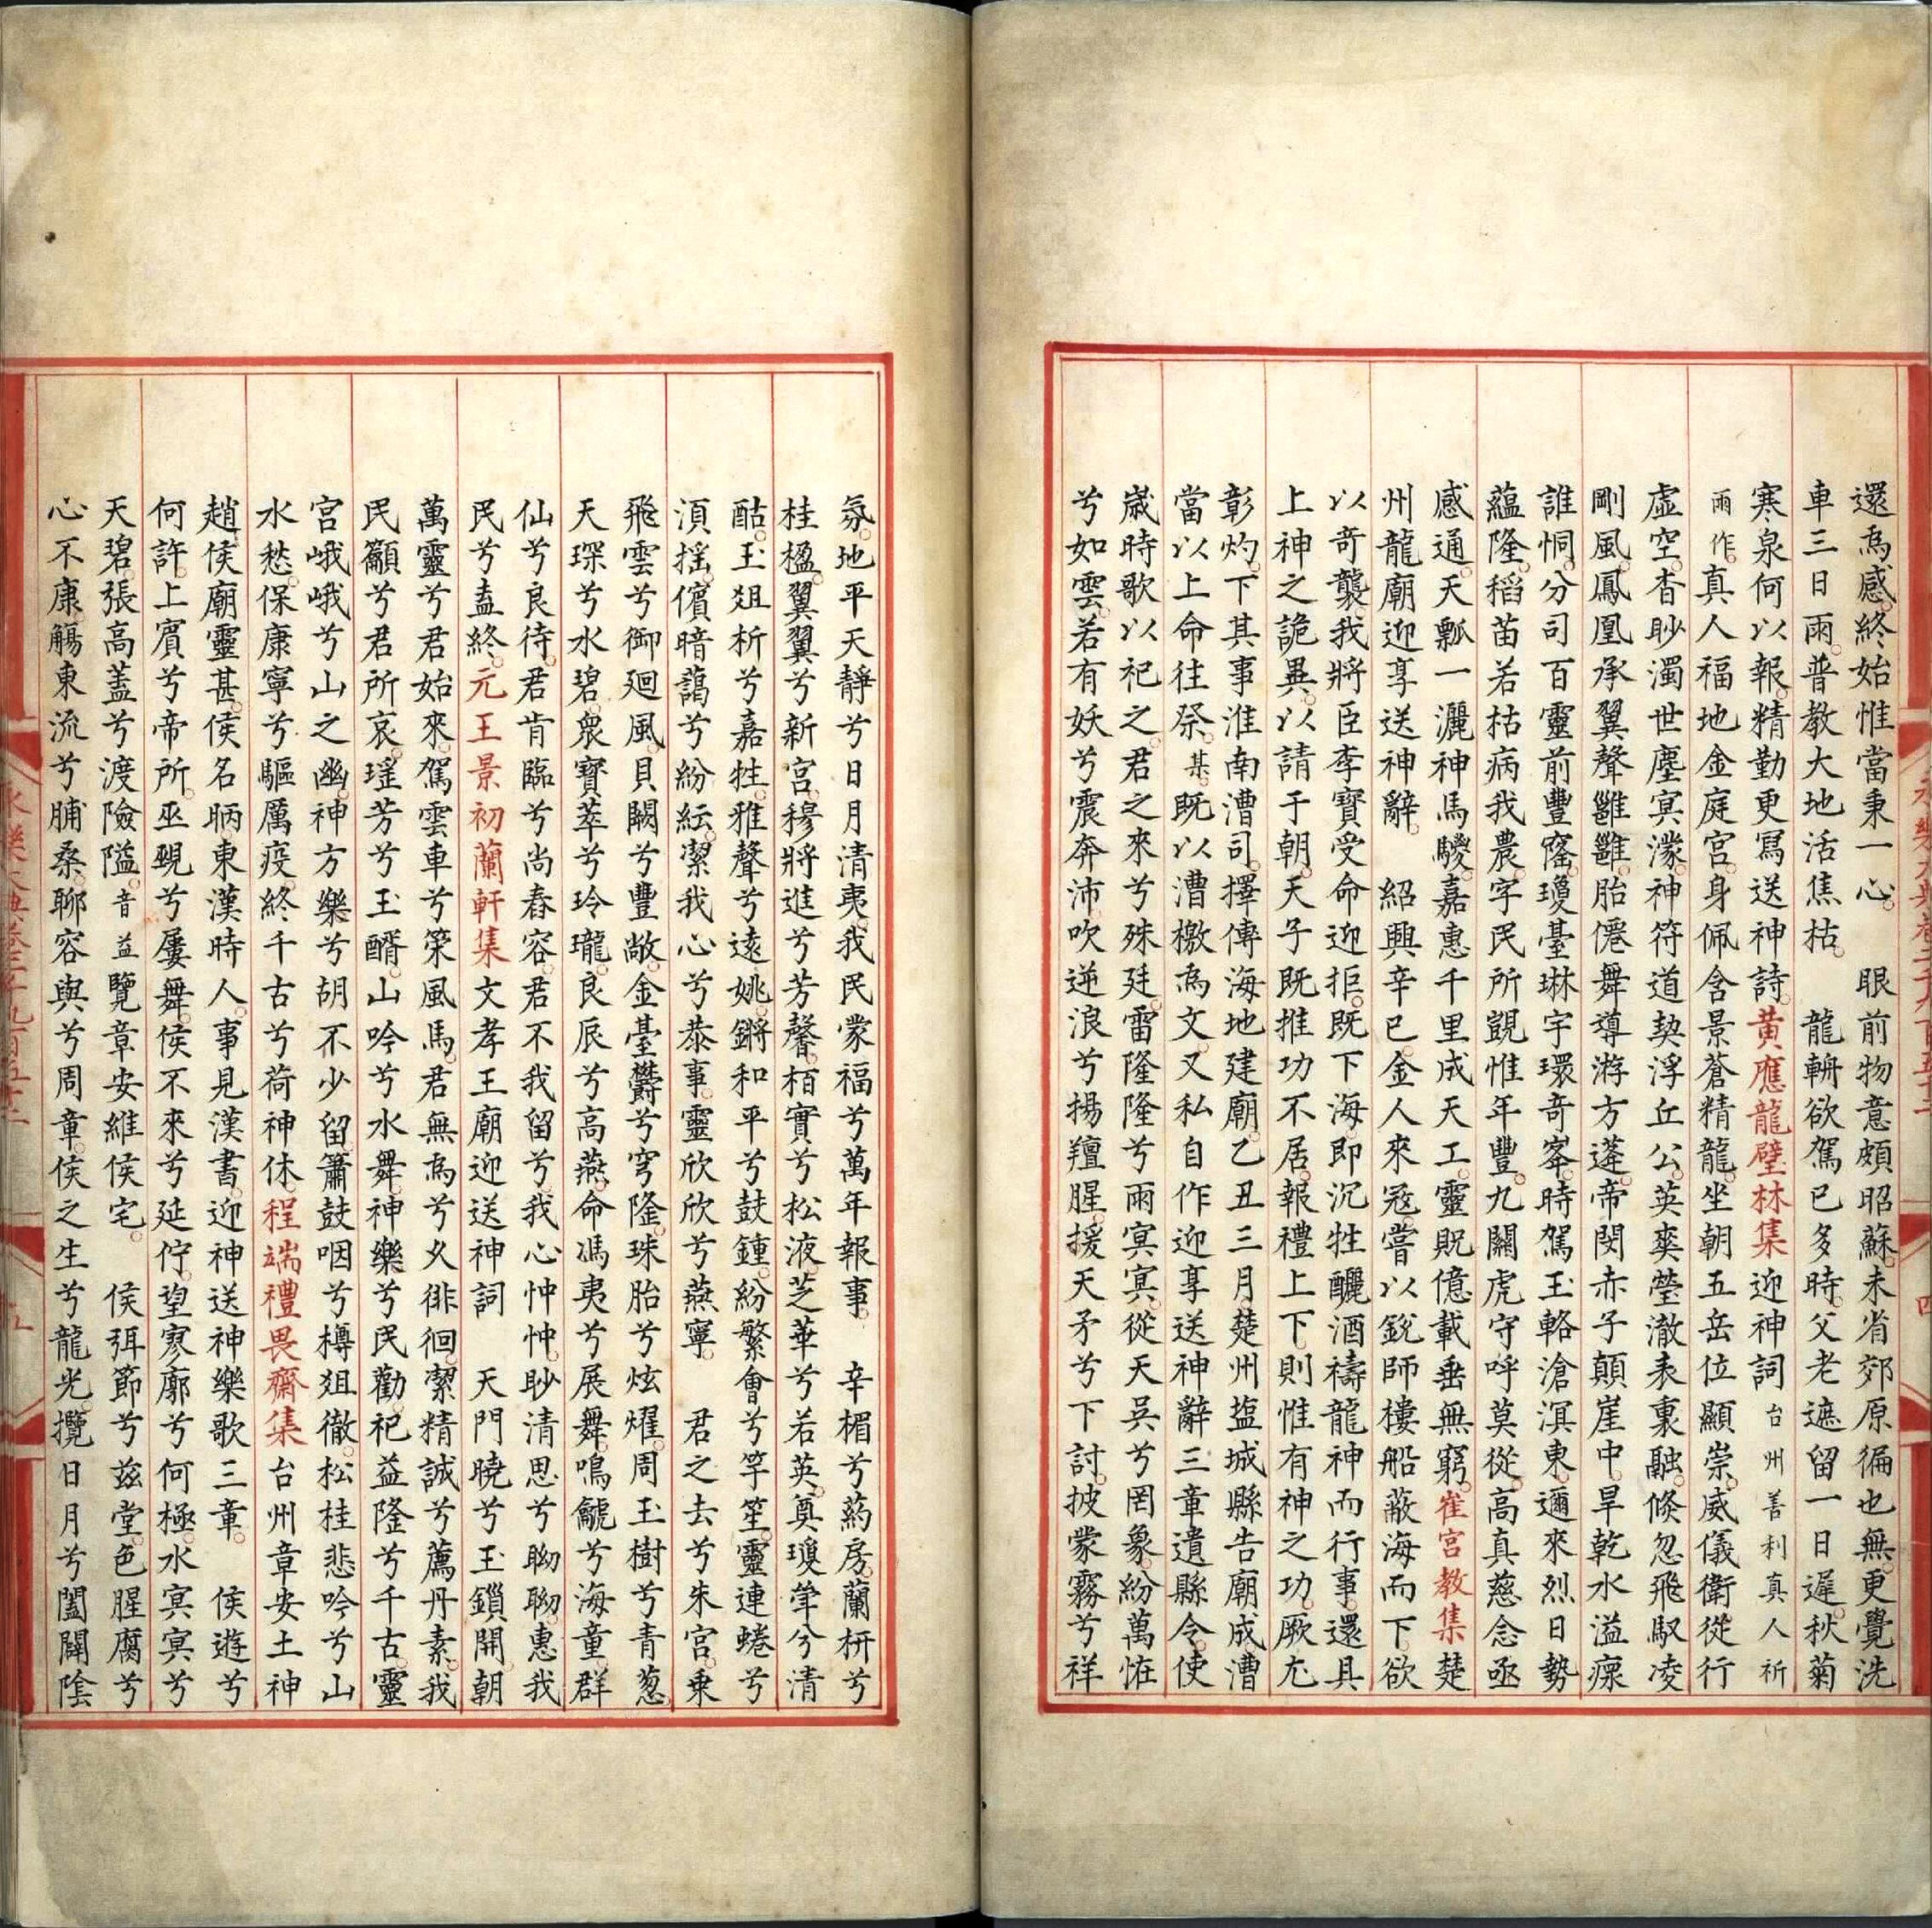 還爲感。終始惟當秉一心。　眼前物意頗昭蘇。未省郊原徧也無。更覺洗
車三日雨。普教大地活焦枯。　龍輈欲駕已多時。父老遮留一日遲。秋菊
寒泉何以報。精勤更寫送神詩。黄應龍璧林集迎神詞台州善利真人祈
雨作。真人福地金庭宮。身佩含景蒼精龍。坐朝五岳位顯崇。威儀衛從行
虛空。杳眇濁世塵冥濛。神符道契浮丘公。英爽瑩澈表裏融。倐忽飛馭凌
剛風。鳳凰承翼聲雝雝。胎僊舞導游方蓬。帝閔赤子顛崖中。旱乾水溢瘝
誰恫。分司百靈前豐窿。瓊臺琳宇環奇峯。時駕玉輅滄溟東。邇來烈日勢
蘊隆。稻苗若枯病我農。字民所覬惟年豐。九關虎守呼莫從。高真慈念亟
感通。天瓢一灑神馬騣。嘉惠千里成天工。靈貺億載垂無窮。崔宮教集楚
州龍廟迎享送神辭。　紹興辛巳。金人來冦。嘗以銳師樓船蔽海而下。欲
以奇襲我將臣李寶受命迎拒。既下海。即沉牲釃酒禱龍神而行事。還具
上神之詭異。以請于朝。天子既推功不居。報禮上下。則惟有神之功。厥尤
彰灼。下其事淮南漕司。擇傳海地建廟。乙丑三月。楚州塩城縣告廟成。漕
當以上命往祭。某。既以漕檄爲文。又私自作迎享送神辭三章遺縣令。使
歲時歌以祀之。君之來兮殊廷。雷隆隆兮雨冥冥。從天吳兮罔象。紛萬恠
兮如雲。若有妖兮震奔沛。吹逆浪兮揚羶腥。援天矛兮下討。披蒙霧兮祥
氛。地平天靜兮日月清夷。我民蒙福兮萬年報事。　辛楣兮葯房。蘭枅兮
桂楹。翼翼兮新宮。穆將進兮芳馨。栢實兮松液。芝華兮若英。奠瓊斝兮清
酤。玉俎析兮嘉牲。雅聲兮遠姚。鏘和平兮鼓鍾。紛繁會兮竽笙。靈連蜷兮
湏搖。儐暗藹兮紛紜。潔我心兮恭事。靈欣欣兮燕寧。　君之去兮朱宮。乗
飛雲兮御廻風。貝闕兮豐敞。金臺欝兮穹隆。珠胎兮炫燿。周玉樹兮青葱。
天琛兮水碧。衆寳萃兮玲瓏。良辰兮高燕。命馮夷兮展舞。鳴鯱兮海童。群
仙兮良待。君肯臨兮尚春容。君不我留兮我心忡忡。眇清思兮聊聊。惠我
民兮盍終。元王景初蘭軒集文孝王廟迎送神詞　天門曉兮玉鎖開。朝
萬靈兮君始來。駕雲車兮策風馬。君無爲兮久徘徊。潔精誠兮薦丹素。我
民籲兮君所哀。瑶芳兮玉醑。山吟兮水舞。神樂兮民勸。祀益隆兮千古。靈
宮峨峨兮山之幽。神方樂兮胡不少留。簫鼓咽兮樽俎徹。松桂悲吟兮山
水愁。保康寧兮驅厲疫。終千古兮荷神休。程端禮畏齋集台州章安土神
趙侯廟靈甚。侯名昞。東漢時人。事見漢書。迎神送神樂歌三章。　侯遊兮
何許。上賓兮帝所。巫覡兮屢舞。侯不來兮延佇。望寥廓兮何極。水冥冥兮
天碧。張高蓋兮渡險隘。音益覽章安維侯宅。　侯弭節兮兹堂。色腥腐兮
心不康。觴東流兮脯桑。聊容與兮周章。侯之生兮龍光。攬日月兮闔闢陰